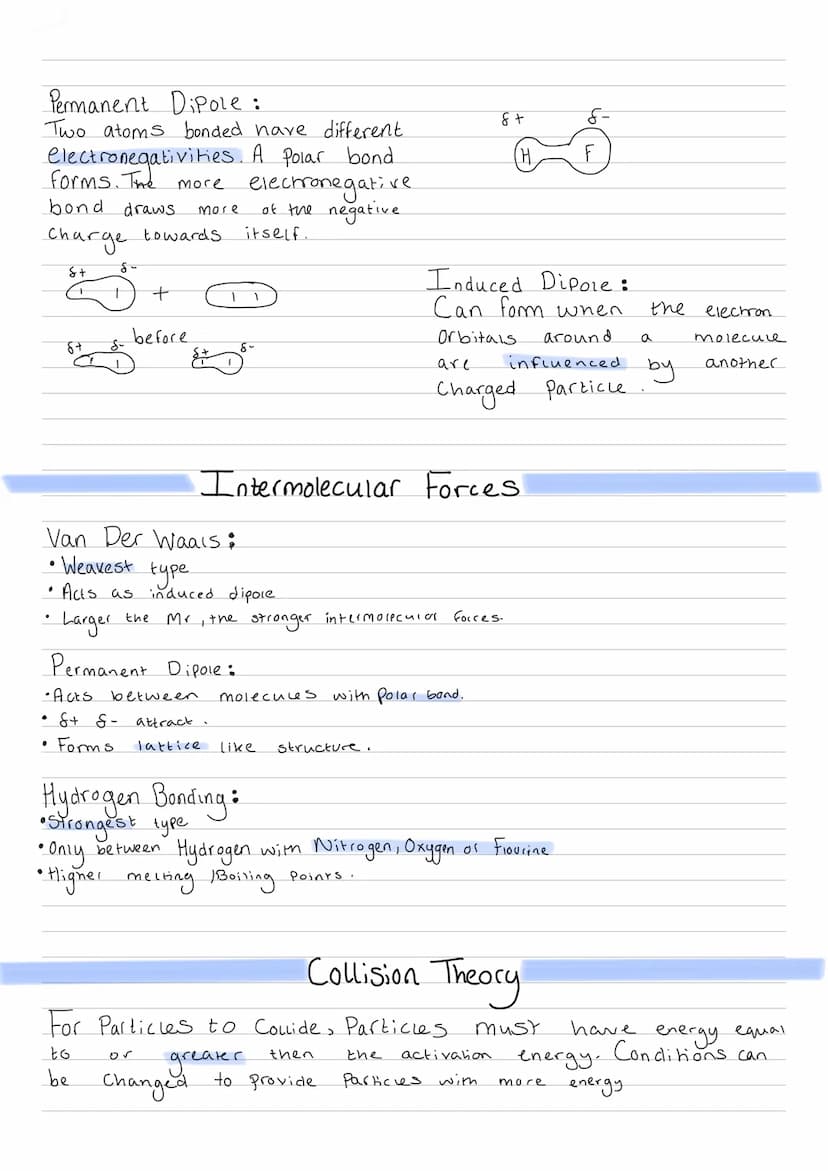 Permanent Dipole :
Two atoms bonded have different
electronegativities. A Polar bond
forms. The more electronegative
bond draws more of the negative
charge towards itself.
δ+ δ-
H F
δ+ δ-
+
before
δ+ δ- δ+ δ-
Induced Dipole :
Can form when the electron
orbitals around a molecule
are influenced by another
Charged Particle .
Intermolecular Forces
Van Der Waals :
• Weakest type
• Acts as induced dipole
• Larger the Mr , the stronger intermolecular forces.
Permanent Dipole :
• Acts between molecules with Polar bond.
• δ+ δ- attract .
• Forms lattice like structure .
Hydrogen Bonding :
• Strongest type
• Only between Hydrogen with Nitrogen, Oxygen or Flourine
• Higher melting /Boiling Points .
Collision Theory
For Particles to Collide, Particles must have energy equal
to or greater then the activation energy. Conditions can
be changed to provide Particles with more energy